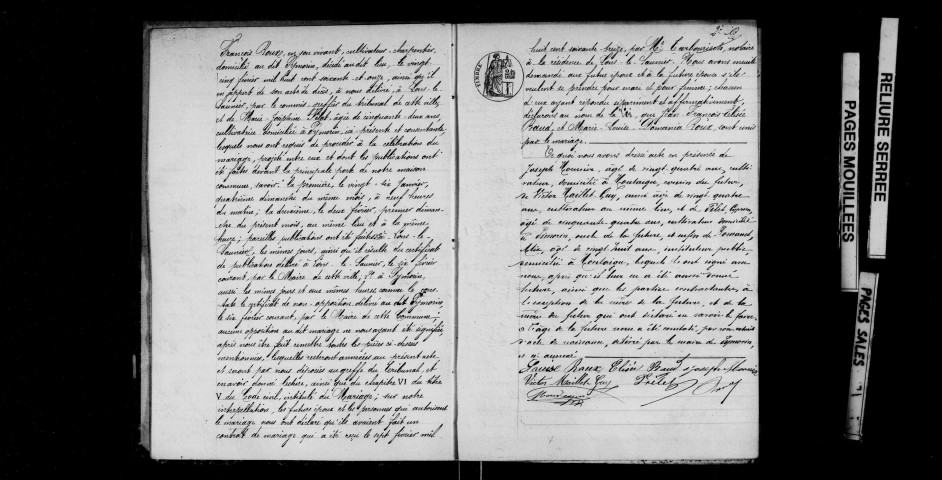 François Roux, en son vivant, cultivateur-charpentier,
domicilié au dit Gymorin, décédé au dit lieu, le vingt
cinq février mil huit cent soixante et onze, ainsi qu'il
en appert de son acte de décès, à nous délivré, à Lons-le-
Saunier, par le commis-greffier du tribunal de cette ville,
et de Marie Joséphine Pilet, âgée de cinquante deux ans,
cultivatrice domiciliée à, ici présente et consentante,
lesquels nous ont requis de procéder à la célébration du
mariage, projeté entre eux et dont les publications ont
été faites devant la principale porte de notre maison
commune, savoir: la première, le vingt-six Janvier,
quatrième dimanche du même mois, à neuf heures
du matin; la deuxième, le deux février, premier diman-
che du présent mois, au même lieu et à la même
heure; pareilles publications ont été faites à Lons-le-
Saunier, les mêmes jours, ainsi qu'il résulte du certificat
de publication délivré à Lons-le-Saunier, le six février
courant, par le Maire de cette ville; et à
aussi les mêmes jours et aux mêmes heures, comme le cons-
tate le certificat de non-opposition délivré au dit
le six février courant, par le Maire de cette Commune;
aucune opposition au dit mariage ne nous ayant été signifiée,
après nous être fait remettre toutes les pièces ci-dessus
mentionnées, lesquelles resteront annexées au présent acte
et seront par nous déposées au greffe du Tribunal, et
en avoir donné lecture, ainsi que du chapitre VI du titre
V du Code civil, intitulé du Mariage; sur notre
interpellation, les futurs époux et les personnes qui autorisent
le mariage nous ont déclaré qu'ils avaient fait un
contrat de mariage qui a été reçu le sept février mil
TIMBRE
huit cent soixante treize, par Me, notaire
à la résidence de Lons-le-Saunier. Nous avons ensuite
demandé aux futur époux et à la future épouse s'ils
veulent se prendre pour mari et pour femme; chacun
d'eux ayant répondu séparément et affirmativement,
déclarons au nom de la loi, que Jean François Elisée
et Marie Louise Roux, sont unis
par le mariage.
De quoi nous avons dressé acte en présence de
Joseph Monnier, âgé de vingt quatre ans, culti-
vateur, domicilié à Montaigu, cousin du futur,
de Victor Maillet-Guy, aussi âgé de vingt quatre
ans, cultivateur au même lieu, et de Pilet,
âgé de cinquante-quatre ans, cultivateur domicilié
à, oncle de la future, et enfin de
âgé de vingt huit ans, instituteur public,
domicilié à Montaigu, lesquels ont signé avec
nous, après qu'il leur en a été aussi donné
lecture, ainsi que les parties contractantes, à
l'exception de la mère de la future, et de la
mère du futur qui ont déclaré ne savoir le faire.
L'âge de la future nous a été constaté, par
acte de naissance, délivré par le maire de
Louise Roux Elisée Joseph Monnier
Victor Maillet Guy Pilet
RELIURE SERREE
PAGES MOUILLEES
PAGES SALES